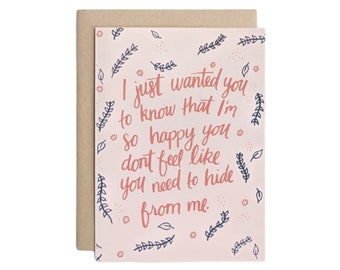 I just wanted you
to know that I'm
so happy you
dont feel like
you need to hide
from me.